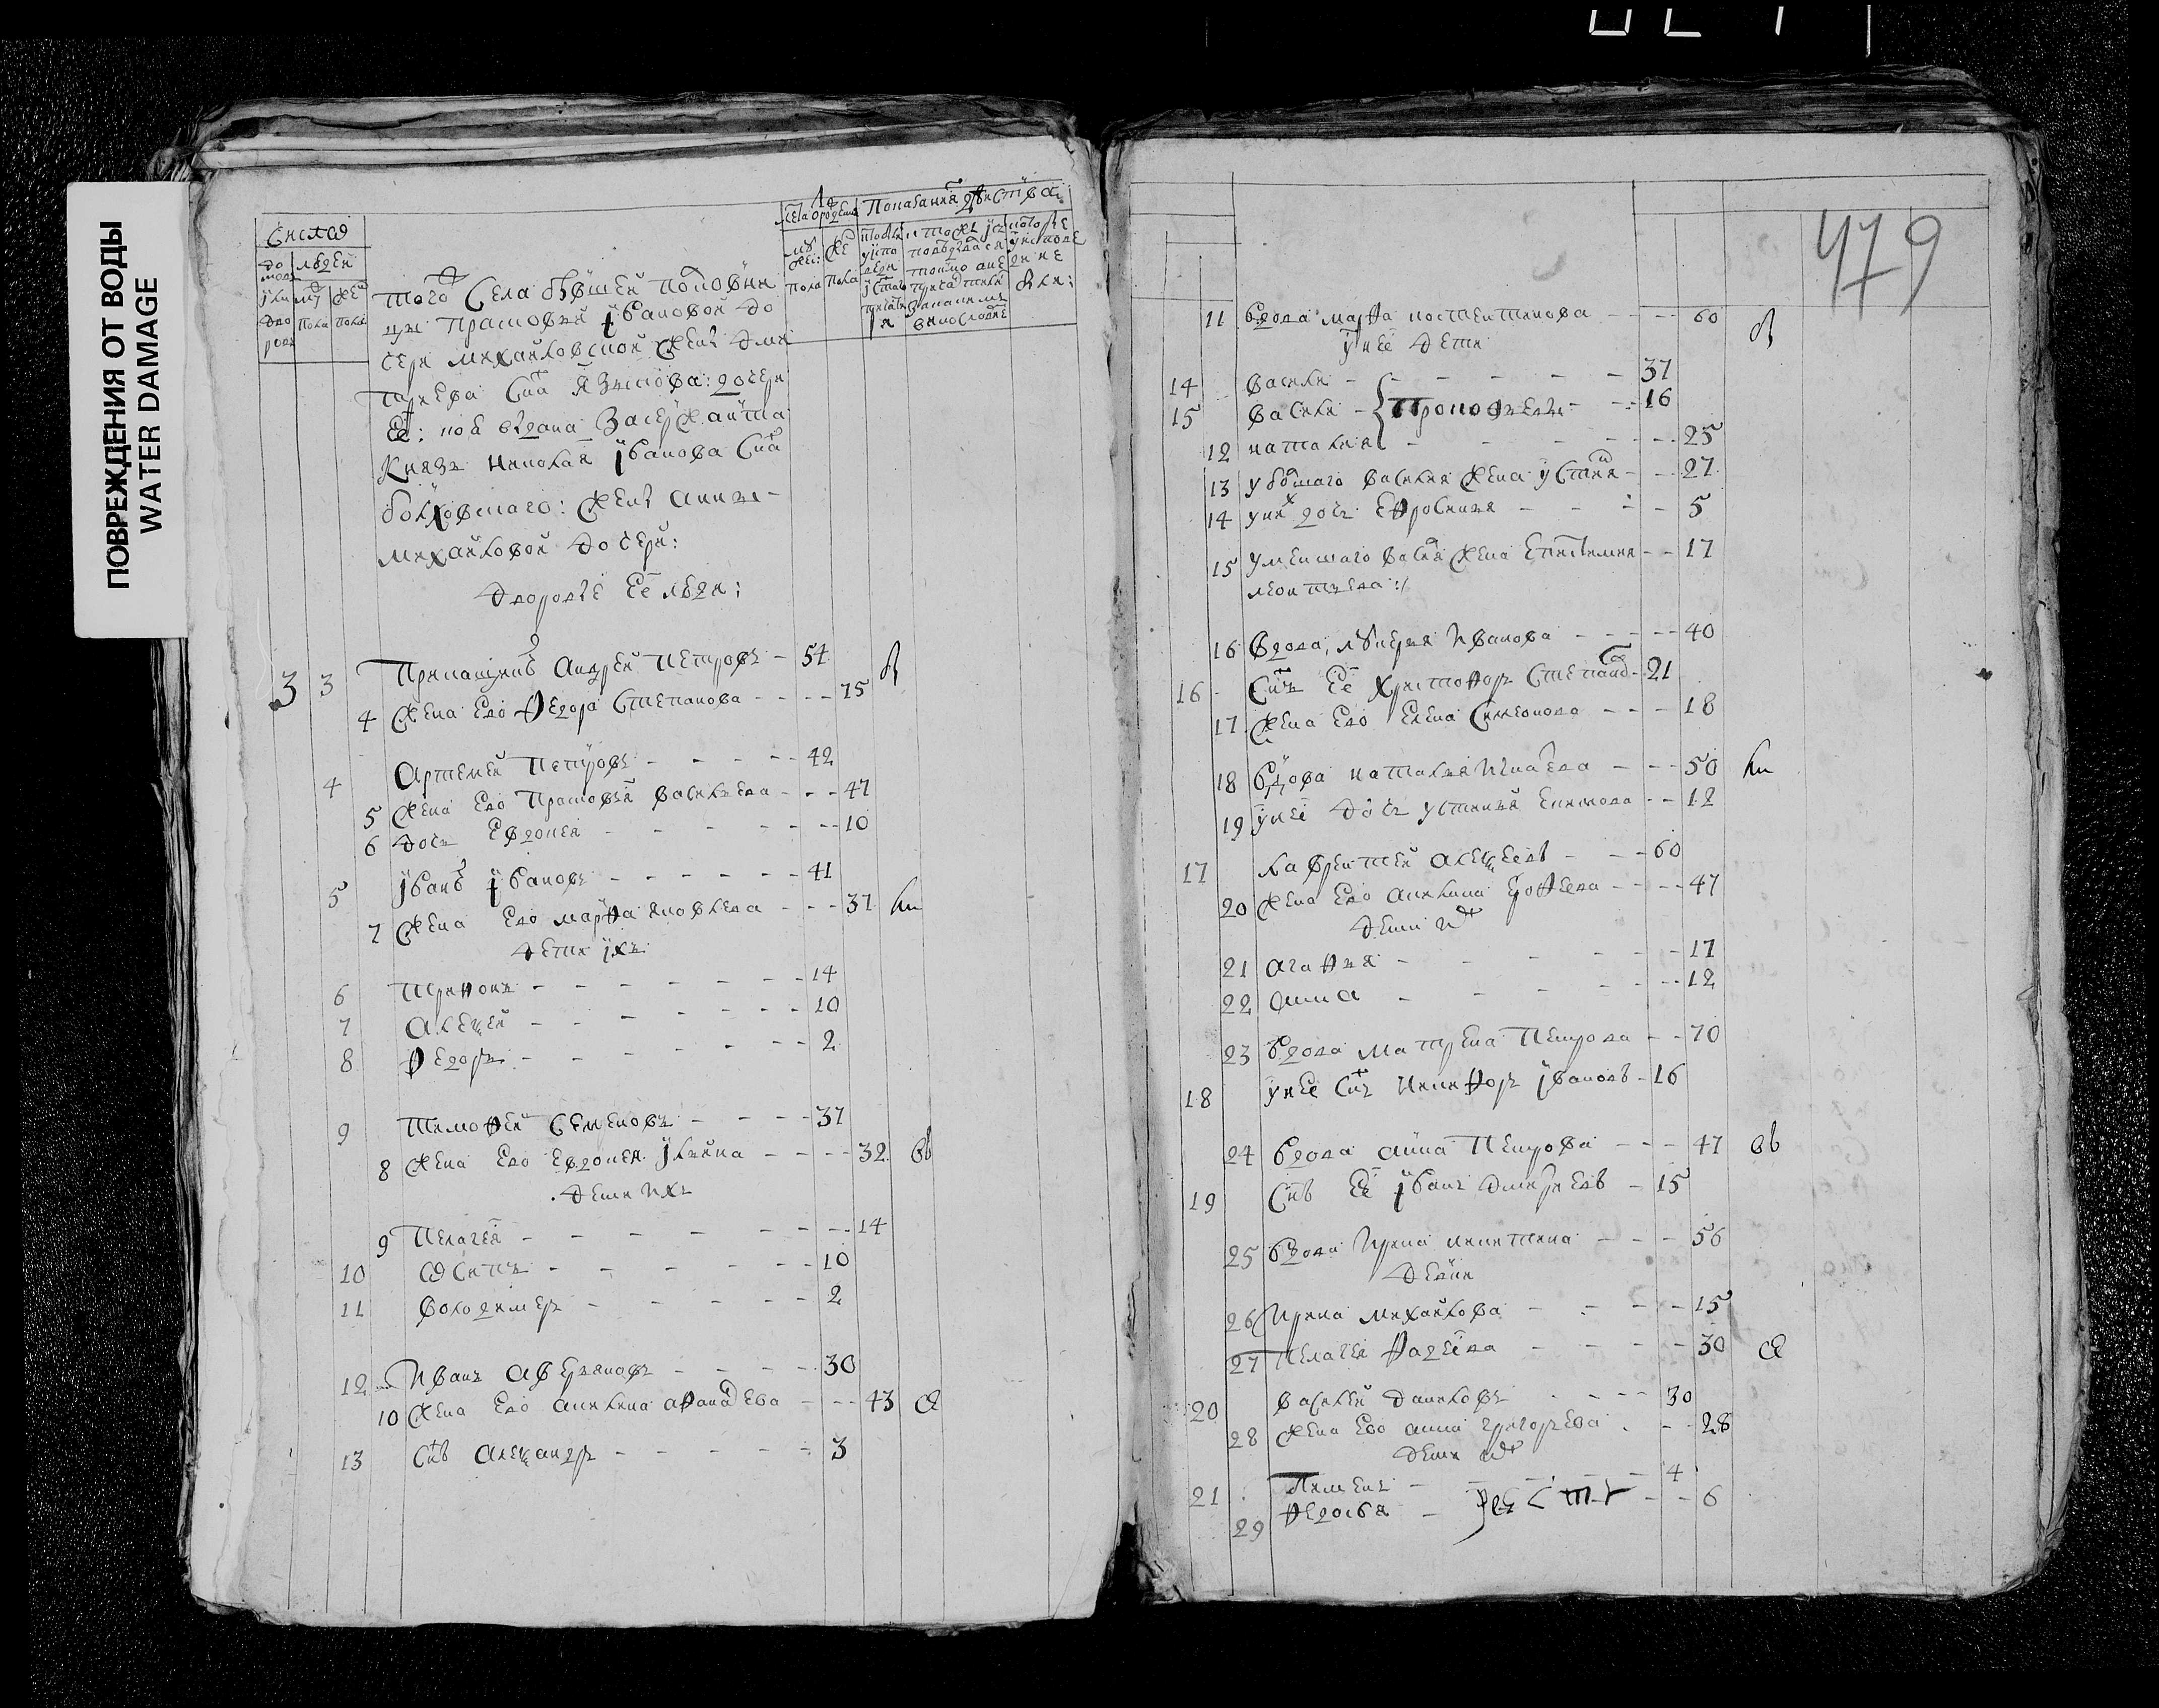 ПОВРЕЖДЕНИЯ ОТ ВОДЫ
WATER DAMAGE
479
Число
домовъ
людей
или дво ровъ
му пола
же пола
Лета от рождения
муже: пола
же пола
Показание действа
того ж Села бывшей половин
цы Прасковьи Ивановой до
чери михайловской жены Дми
триева Сна Языкова: дочери
ее:
Князь николая Иванова Сна
болховского: жены анны
михайловой дочери:
дворовые ее люди:
3 3 Прикащикъ Андрей Петровъ - 54
4 Жена Его Федора Степанова - - - - 75
4 Артемей Петровъ - - - - - 42
5 Жена Его Прасковья Васильева - - - 47
6 дочь Евдокея - - - - - - - 10
5 Иванъ Ивановъ - - - - - - 41
7 Жена Его марфа яковлева - - - 37
дети ихъ
6 Трифонъ - - - - - - - 14
7 Алексей - - - - - - - 10
8 Федоръ - - - - - - - 2
9 Тимофей Семеновъ - - - - 37
8 Жена Его Евдокея Ильина - - - - 32
дети ихъ
9 Пелагея - - - - - - - - 14
10 Осипъ - - - - - - 10
11 Володимеръ - - - - - 2
12 Иванъ Аверяновъ - - - - 30
10 Жена Его Акилина афанасьева - - - 43
13 Снъ Александръ - - - - - - 3
11 вдова марфа костентинова - - - - 60
у нее дети
14 Василей - - - - - - 37
15 Василей - Прокофьевы - - - 16
12 наталия - - - - - - 25
13 у большаго василия жена устиния - - - 27
14 у них дочь Ефросинья - - - - 5
15 у меншаго василия жена Епистимия - - 17
леонтьева :/
16 Вдова, лукерья Иванова - - - - - 40
16 Снъ Ее Христофоръ Степановъ - 21
17 Жена Его Елена Симеонова - - - 18
18 Вдова наталья Игнатева - - - - 50
19 у нее дочь устинья Екимова - - 12
17 лаврентей алексеевъ - - - 60
20 жена Его Акилина Ерофеева - - - - 47
дети их
21 агафья - - - - - - - 17
22 анна - - - - - - - 12
23 вдова матрена Петрова - - - 70
18 у нее Снъ никифоръ Ивановъ - 16
24 вдова анна Петрова - - - 47
19 Снъ Ее Иванъ дмитриевъ - 15
25 вдова Ирина никитина - - - - 56
девки
26 Ирина михайлова - - - - - 15
27 Пелагея Фадеева - - - - 30
20 Василей даниловъ - - - - 30
28 жена Ево анна григорьева - - - 28
дети их
21 Пимен - - - - - 4
29 Федосья - - - 6